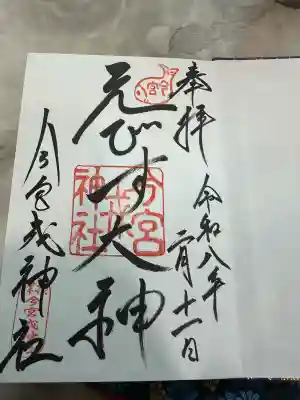 奉拝
令和八年
二月十一日
えびす大神
今宮
戎
神社
今宮戎神社